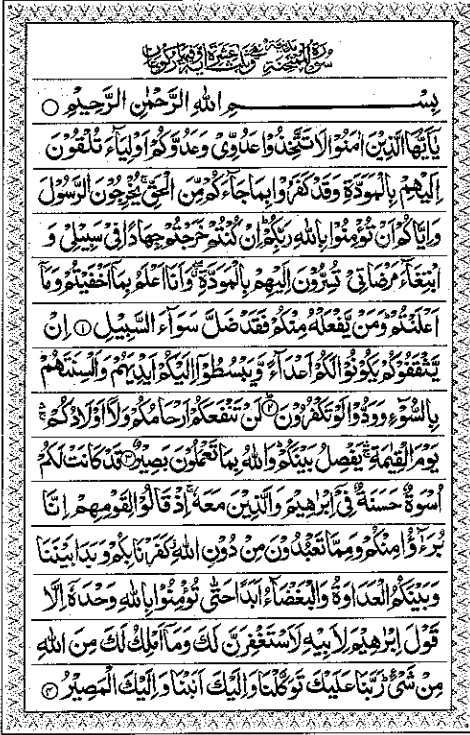 سُوْرَةُ الْمُمْتَحِنَةِ مَدَنِيَّةٌ ثَلٰثَ عَشْرَةَ اٰيَةً وَّفِيْهَا رُكُوْعَانِ
بِسْمِ اللهِ الرَّحْمٰنِ الرَّحِيْمِ ○
يٰۤاَيُّهَا الَّذِيْنَ اٰمَنُوْا لَا تَتَّخِذُوْا عَدُوِّيْ وَعَدُوَّكُمْ اَوْلِيَآءَ تُلْقُوْنَ
اِلَيْهِمْ بِالْمَوَدَّةِ وَقَدْ كَفَرُوْا بِمَا جَآءَكُمْ مِّنَ الْحَقِّ ۚ يُخْرِجُوْنَ الرَّسُوْلَ
وَاِيَّاكُمْ اَنْ تُؤْمِنُوْا بِاللهِ رَبِّكُمْ ؕ اِنْ كُنْتُمْ خَرَجْتُمْ جِهَادًا فِيْ سَبِيْلِيْ وَ
ابْتِغَآءَ مَرْضَاتِيْ تُسِرُّوْنَ اِلَيْهِمْ بِالْمَوَدَّةِ ۖ وَاَنَا اَعْلَمُ بِمَاۤ اَخْفَيْتُمْ وَمَاۤ
اَعْلَنْتُمْ ؕ وَمَنْ يَّفْعَلْهُ مِنْكُمْ فَقَدْ ضَلَّ سَوَآءَ السَّبِيْلِ ۝۱ اِنْ
يَّثْقَفُوْكُمْ يَكُوْنُوْا لَكُمْ اَعْدَآءً وَّيَبْسُطُوْۤا اِلَيْكُمْ اَيْدِيَهُمْ وَاَلْسِنَتَهُمْ
بِالسُّوْٓءِ وَوَدُّوْا لَوْ تَكْفُرُوْنَ ۝۲ لَنْ تَنْفَعَكُمْ اَرْحَامُكُمْ وَلَاۤ اَوْلَادُكُمْ ۛ
يَوْمَ الْقِيٰمَةِ ۛ يَفْصِلُ بَيْنَكُمْ ؕ وَاللهُ بِمَا تَعْمَلُوْنَ بَصِيْرٌ ۝۳ قَدْ كَانَتْ لَكُمْ
اُسْوَةٌ حَسَنَةٌ فِيْۤ اِبْرٰهِيْمَ وَالَّذِيْنَ مَعَهٗ ۚ اِذْ قَالُوْا لِقَوْمِهِمْ اِنَّا
بُرَءٰٓؤُا مِنْكُمْ وَمِمَّا تَعْبُدُوْنَ مِنْ دُوْنِ اللهِ ؗ كَفَرْنَا بِكُمْ وَبَدَا بَيْنَنَا
وَبَيْنَكُمُ الْعَدَاوَةُ وَالْبَغْضَآءُ اَبَدًا حَتّٰى تُؤْمِنُوْا بِاللهِ وَحْدَهٗۤ اِلَّا
قَوْلَ اِبْرٰهِيْمَ لِاَبِيْهِ لَاَسْتَغْفِرَنَّ لَكَ وَمَاۤ اَمْلِكُ لَكَ مِنَ اللهِ
مِنْ شَيْءٍ ؕ رَبَّنَا عَلَيْكَ تَوَكَّلْنَا وَاِلَيْكَ اَنَبْنَا وَاِلَيْكَ الْمَصِيْرُ ۝۴